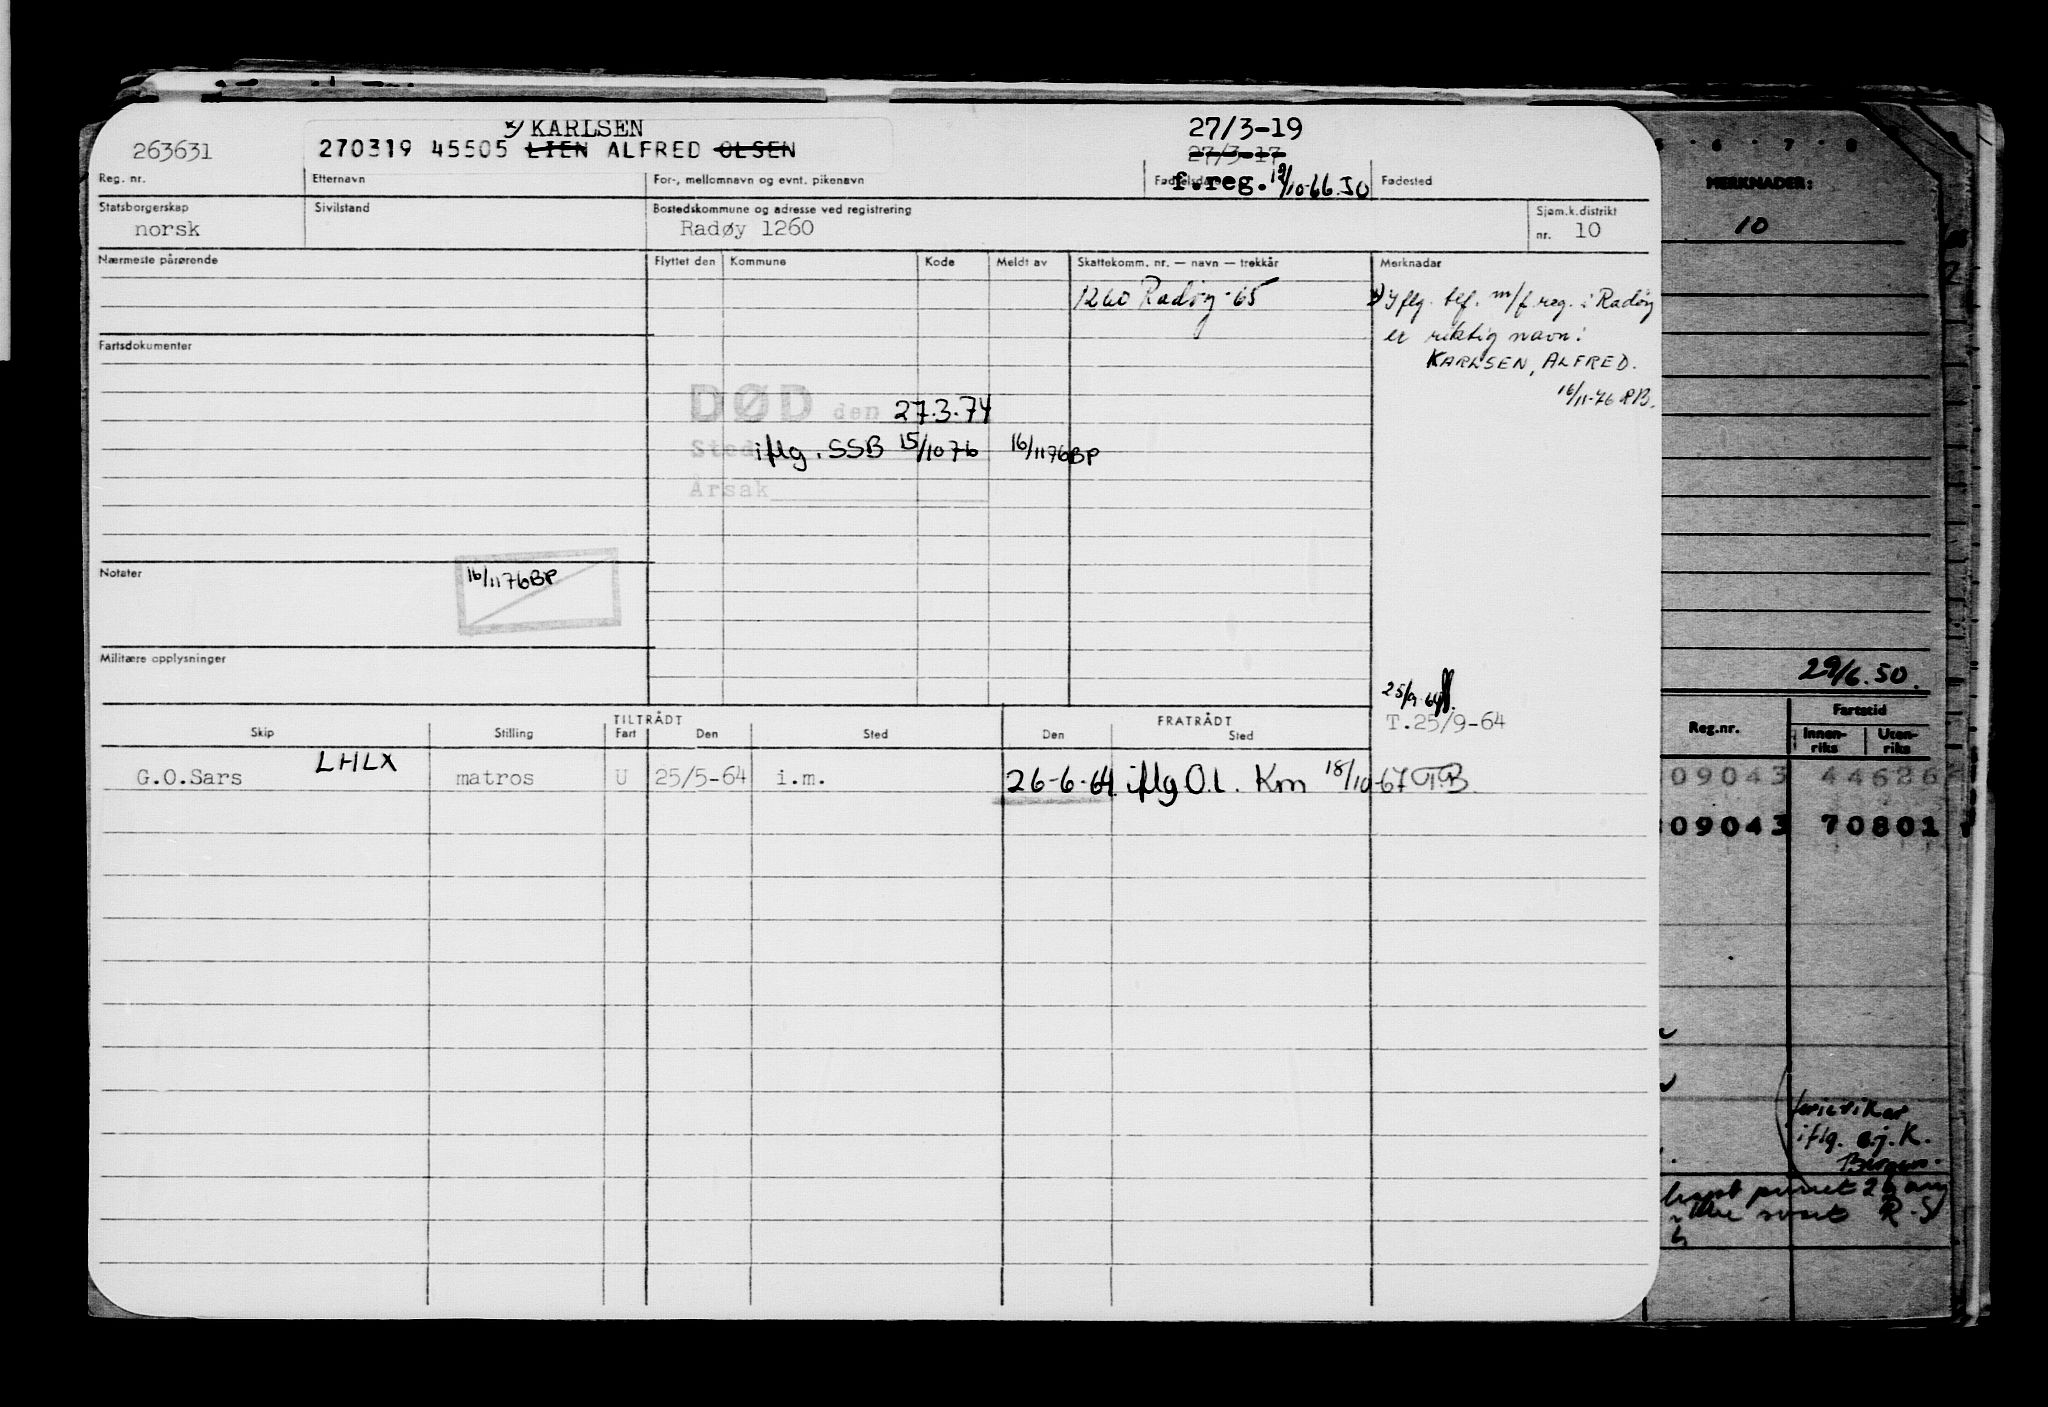 x) KARLSEN
27/3-19
263631
270319 45505 LIEN ALFRED OLSEN
27/3-17
Reg. nr.
Etternavn
For-, mellomnavn og evnt. pikenavn
f.reg. 19/10-66 JO
Fødested
Statsborgerskap
Sivilstand
Bostedskommune og adresse ved registrering
Sjøm.k.distrikt
norsk
Radøy 1260
nr. 10
Nærmeste pårørende
Flyttet den
Kommune
Kode
Meldt av
Skattekomm. nr. — navn — trekkår
Merknader
1260 Radøy-65
x) Iflg. tlf. m/f.reg. i Radøy
er riktig navn:
KARLSEN, ALFRED.
16/11-76 RB.
Fartsdokumenter
DØD den 27.3.74
Sted iflg. SSB 15/10 76 16/11 76 BP
Årsak
Notater
16/11 76 BP
Militære opplysninger
25/9-64
T.25/9-64
TILTRÅDT
FRATRÅDT
Skip
Stilling
Fart
Den
Sted
Den
Sted
G.O.Sars LHLX
matros
U
25/5-64
i.m.
26-6-64
iflg O.L. Km 18/10-67 TB
5 6 7 8
MERKNADER:
10
29/6.50.
Reg.nr.
Fartstid
Innen-
riks
Uten-
riks
09043 44626
09043 70801
ferievikar
iflg. e.j.K.
Bergen.